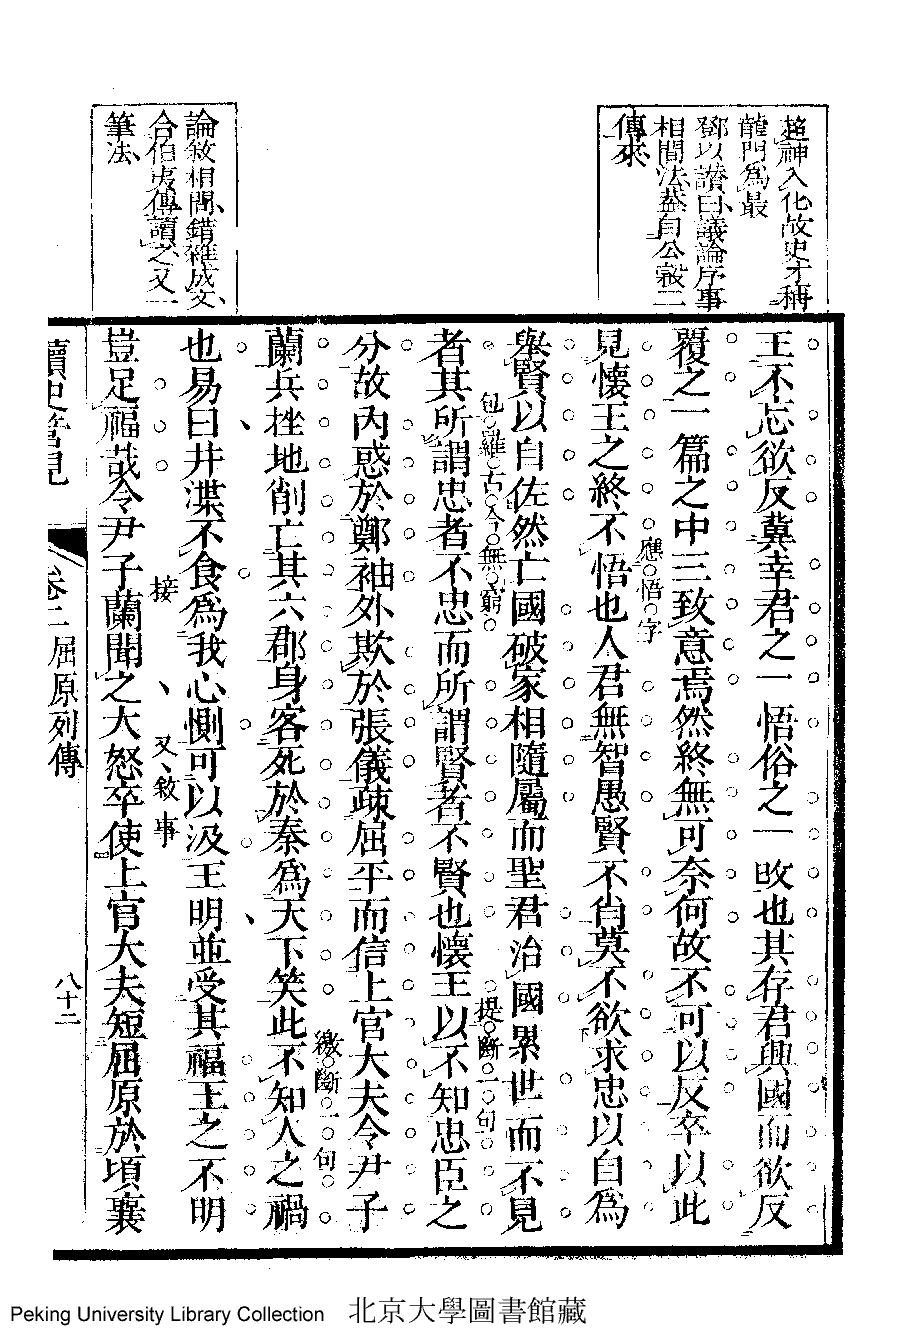 超神入化故史才稱
龍門為最
鄧以讚曰議論序事
相間法葢自公穀二
傳來
論敘相間錯雜成文
合伯夷傳讀之又一
筆法
王不忘欲反冀幸君之一悟俗之一改也其存君興國而欲反
覆之一篇之中三致意焉然終無可奈何故不可以反卒以此
應悟字
見懷王之終不悟也人君無智愚賢不肖莫不欲求忠以自為
舉賢以自佐然亡國破家相隨屬而聖君治國累世而不見
包羅古今無窮
提斷一句
者其所謂忠者不忠而所謂賢者不賢也懷王以不知忠臣之
分故內惑於鄭袖外欺於張儀疎屈平而信上官大夫令尹子
繳斷一句
蘭兵挫地削亡其六郡身客死於秦為天下笑此不知人之禍
也易曰井渫不食為我心惻可以汲王明並受其福王之不明
接
又敘事
豈足福哉令尹子蘭聞之大怒卒使上官大夫短屈原於頃襄
讀史管見
卷二屈原列傳
八十二
Peking University Library Collection 北京大學圖書館藏